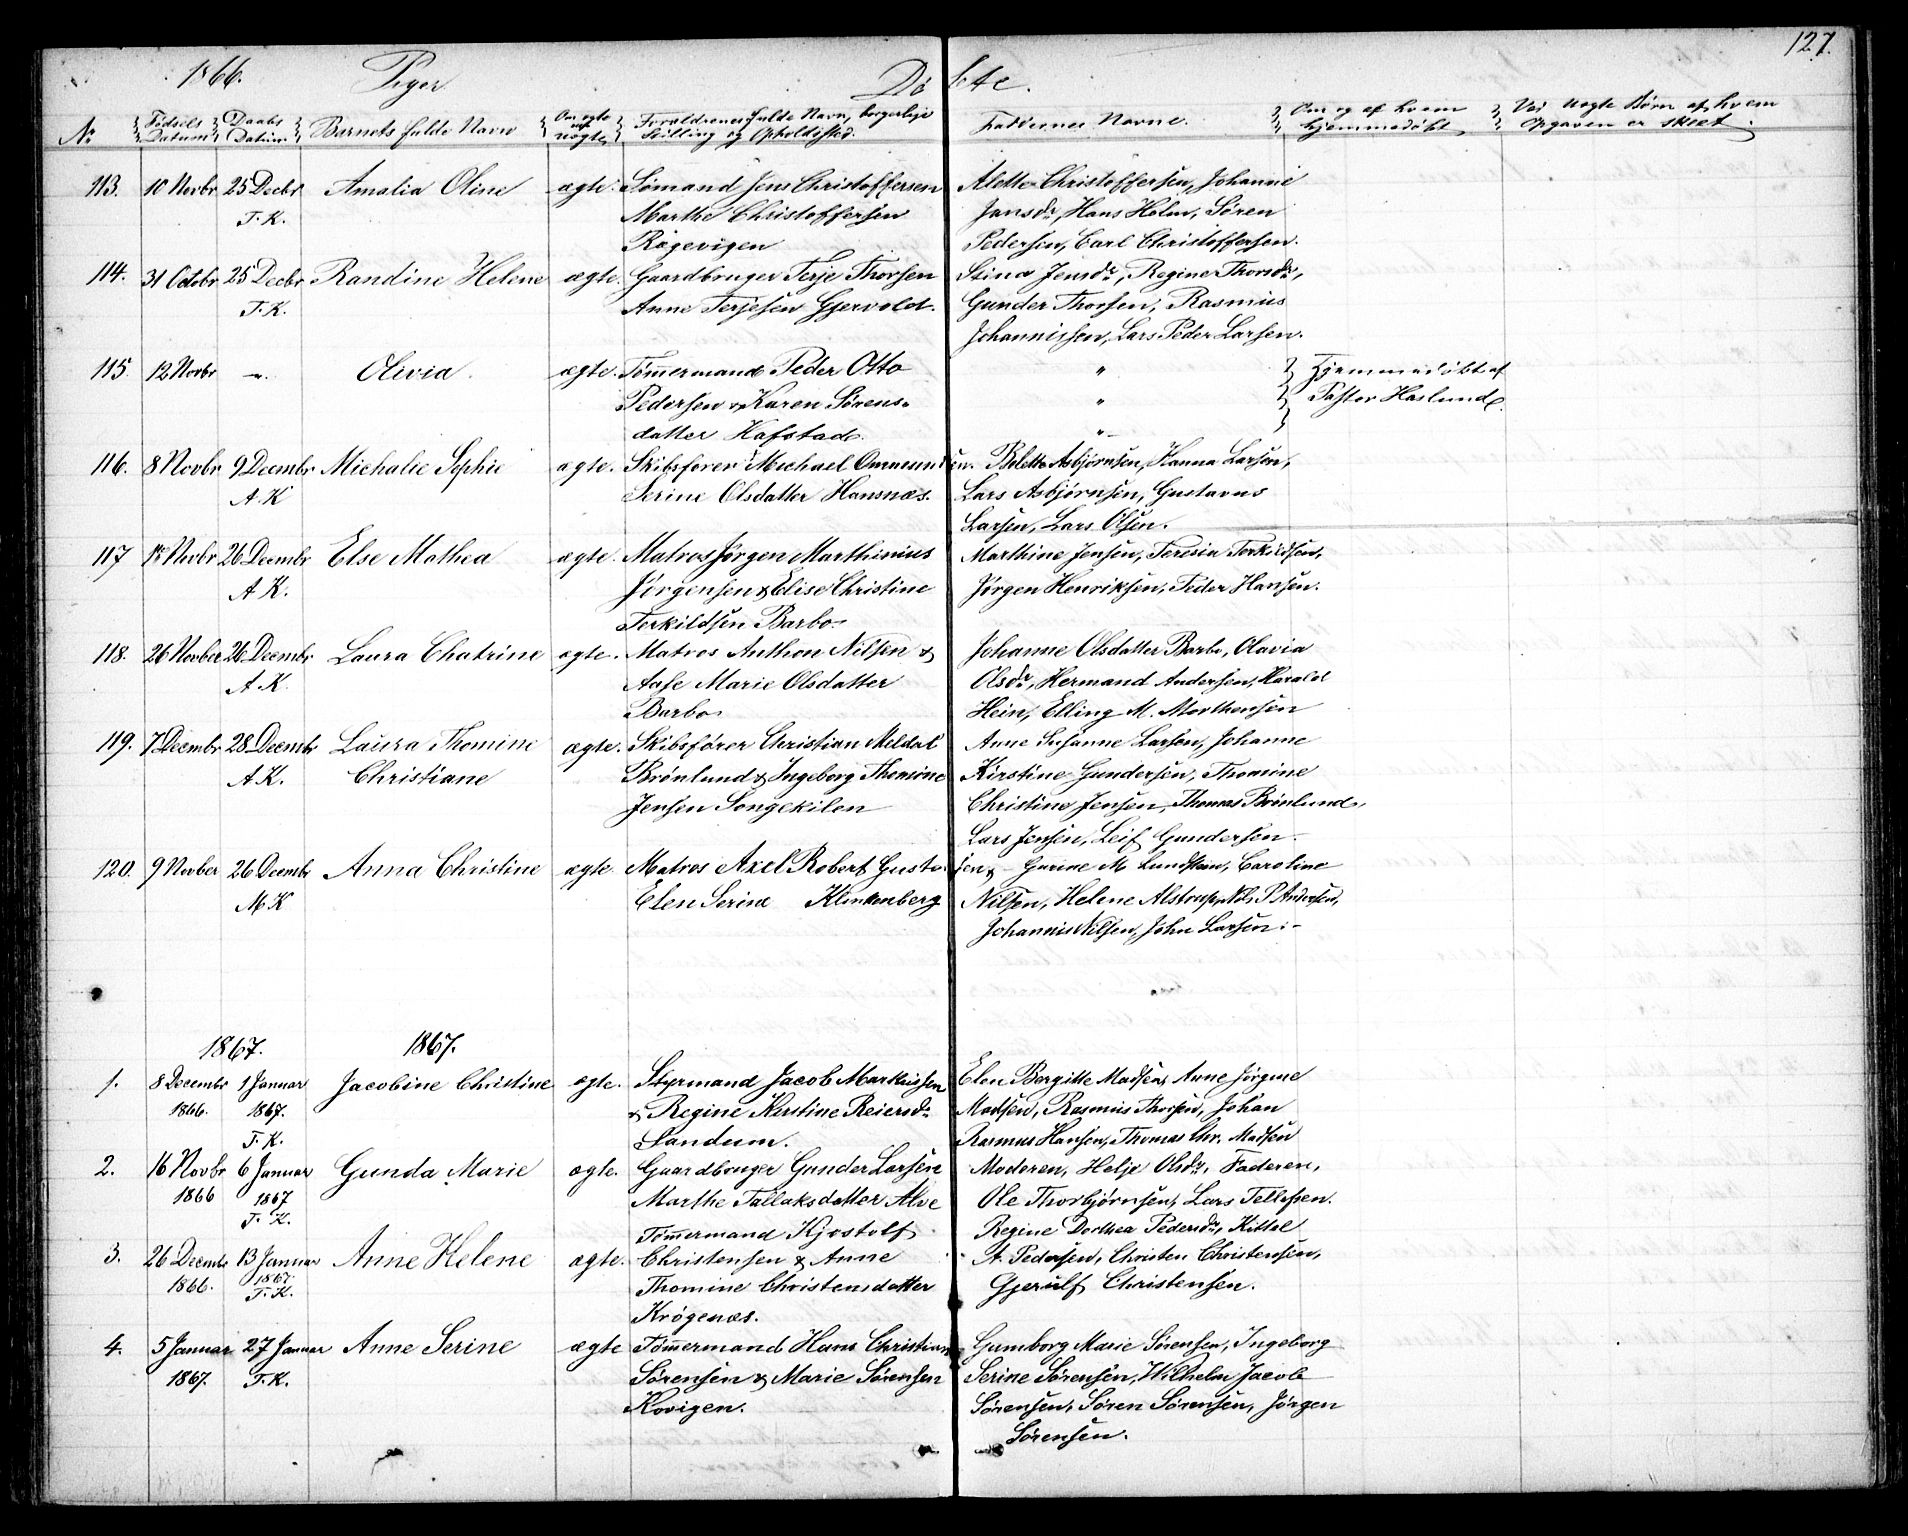 127.
1866. Piger Døbte.
No Fødsels Datum Daabs Datum Barnets fulde Navn Om ægte eller uægte Forældrenes fulde Navn, borgerlige Stilling og Opholdssted. Faddernes Navne. Om og af hvem hjemmedøbt Ved uægte Børn af hvem Opgaven er skeet.
113. 10 Novbr 25 Decbr Amalia Oline ægte. Sømand Jens Christoffersen Alette Christoffersen, Johanne
T. K. Marthe Christoffersen Jansdr, Hans Holm, Søren
Rægevigen Pedersen, Carl Christoffersen.
114. 31 Octobr 25 Decbr Randine Helene ægte. Gaardbruger Terje Thorsen Stina Jensdr, Regine Thorsdr,
T. K. Anne Terjesen Gjervold. Gunder Thorsen, Rasmus
Johannissen, Lars Peder Larsen.
115. 12 Novbr —"— Olivia. ægte. Tømmermand Peder Otto " Hjemmedøbt af
Pedersen & Karen Sørens- " Pastor Haslund.
datter Hafstad. "
116. 8 Novbr 9 Decembr Michalie Sophie ægte. Skibsfører Michael Ommundsen. Bolette Asbjørnsen, Hanna Larsen,
A K Serine Olsdatter Hansnæs. Lars Asbjørnsen, Gustavus
Larsen, Lars Olsen.
117 Novbr 26 Decembr Else Mathea ægte. Matros Jørgen Marthinius Marthine Jensen, Teresia Terkildsen,
A K. Jørgensen & Elise Christine Jørgen Henriksen, Peder Hansen.
Terkildsen Barbo
118. 26 Novber 26 Decembr Laura Chatrine ægte. Matros Anthon Nilsen & Johanne Olsdatter Barbo, Olavia
A. K. Aase Marie Olsdatter Olsdr, Hermand Andersen, Harald
Barbo Hein, Elling M. Morthensen
119. 7 Decembr 28 Decembr Laura Thomine ægte. Skibsfører Christian Meldal Anne Susanne Larsen, Johanne
A K. Christiane Brønlund & Ingeborg Thomine Kirstine Gundersen, Thomine
Jensen Songekilen Christine Jensen, Thomas Brønlund,
Lars Jensen, Leif Gundersen.
120. 9 Novber 26 Decembr Anna Christine ægte. Matros Axel Robert Gustafsen & Gurine M Lundstrøm, Caroline
M. K Elen Serine Klinkenberg Nilsen, Helene Alstrup, Nils P Andersen,
Johannis Nilsen, John Larsen.
1867. 1867.
1. 8 Decembr 1 Januar Jacobine Christine ægte. Styrmand Jacob Markussen Elen Bergitte Madsen, Anne Jørgine
1866. 1867. & Regine Kirstine Reiersdr Madsen, Rasmus Thorsen, Johan
T. K. Sandum. Rasmus Hansen, Thomas Chr. Madsen
2. 16 Novbr 6 Januar Gunda Marie ægte. Gaardbruger Gunder Larsen Moderen, Helje Olsdr, Faderen,
1866 1867 Marthe Tallaksdatter Alve Ole Thorbjørnsen, Lars Tellefsen.
T. K. Tømmermand Kjostolf Regine Dorthea Pedersdr, Kittel
3. 26 Decembr 13 Januar Anne Helene ægte. Christensen & Anne A. Pedersen, Christen Christensen,
1866. 1867. Thomine Christensdatter Gjerulf Christensen.
T. K. Krøgenæs.
4. 5 Januar 27 Januar Anne Serine ægte Tømmermand Hans Christian Gumborg Marie Sørensen, Ingeborg
1867. T. K. Sørensen & Marie Sørensen Serine Sørensen, Wilhelm Jacob
Kovigen. Sørensen, Søren Sørensen, Jørgen
Sørensen.